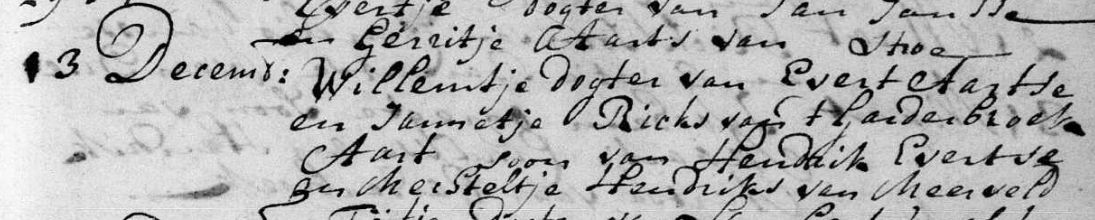 Evertje dogter van Jan Janse
en Gerritje Aarts van Stroe
13 Decemb: Willemtje dogter van Evert Aartse
en Jannetje Ricks van t Harderbroek
Aart soon van Hendrik Evertse
en Merseltje Hendriks van Meerveld
dogter van